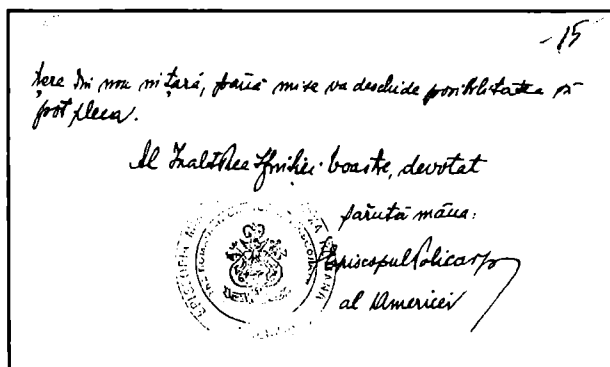 - 15
țere din nou în țară, până mi se va deschide posibilitatea să
pot pleca.
Al Înalt Prea Sfinției Voastre, devotat
sărută mâna:
Episcopul Policarp
al Americei